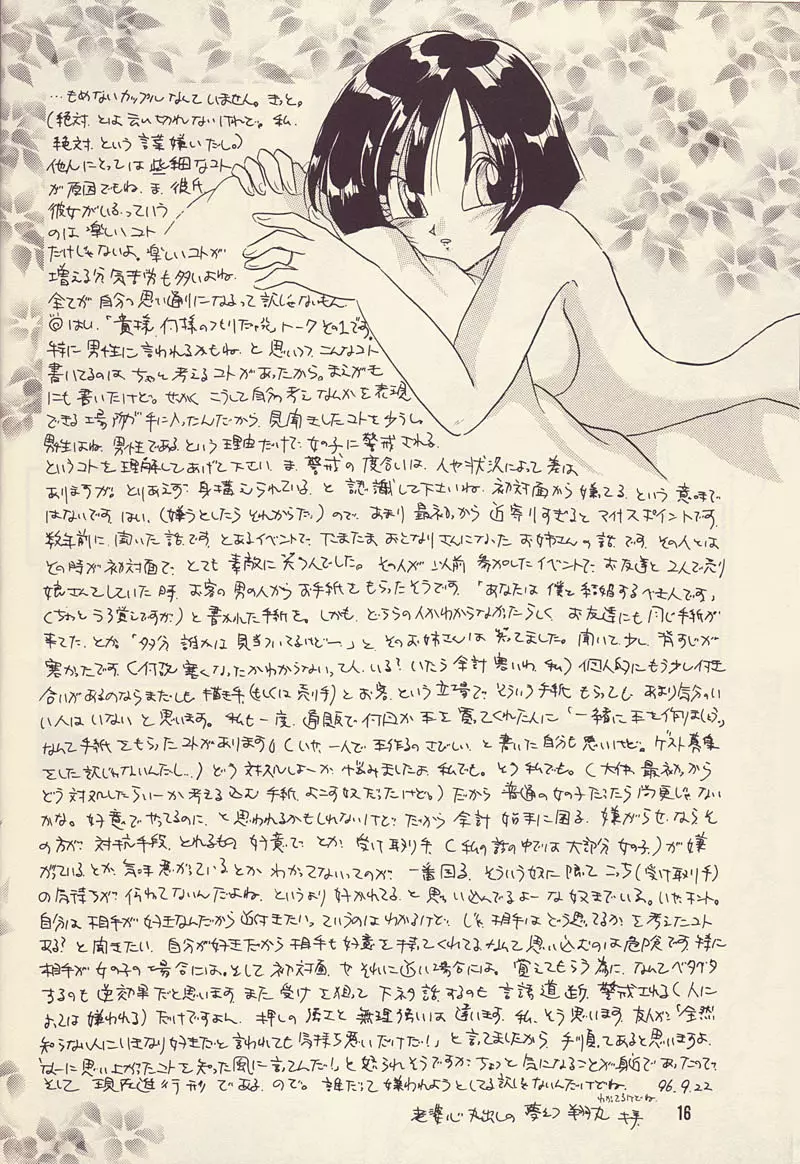 …もめないカップルなんていません。きっと。
(絶対、とは云い切れないけれど。私、
絶対、という言葉嫌いだし。)
他人にとっては些細なコト
が原因でもね。ま、彼氏
彼女がいるっていう
のは楽しいコト
だけじゃないよ。楽しいコトが
増える分気苦労も多いよね。
全てが自分の思い通りになるって訳じゃないもん
はい、「貴様、何様のつもりだ トークその1です。
特に男性に言われるかもね、と思いつつ、こんなコト
書いてるのはちょっと考えるコトがあったから。まえがき
にも書いたけど。せっかくこうして自分の考えなんかを表現
できる場所が手に入ったんだから、見聞きしたコトを少し。
男性はね、男性である、という理由だけで、女の子に警戒される。
というコトを理解してあげて下さい。ま、警戒の度合いは、人や状況によって差は
ありますが。とりあえず、身構えられている、と認識して下さいね。初対面から嫌ってる、という意味で
はないです、はい。(嫌うとしたらそれからだ。)ので、あまり最初っから近寄りすぎるとマイナスポイントです。
数年前に、聞いた話です。とあるイベントで、たまたまおとなりさんになったお姉さんの話です。その人とは
その時が初対面で、とても素敵に笑う人でした。その人が以前参加したイベントで、お友達と2人で売り
娘さんをしていた時、お客の男の人からお手紙をもらったそうです。「あなたは僕と結婚するべき人です」
(ちょっとうろ覚えですが)と書かれた手紙を。しかも、どちらの人かわからなかったらしく、お友達にも同じ手紙が
来てた、とか。「多分誰かは見当ついてるけどー」と、そのお姉さんは笑ってました。聞いて少し、背すじが
寒かったです(何故寒くなったかわからないって人、いる？いたら余計寒いわ、私)個人的にもう少し付き
合いがあるのならまだしも、描き手(もしくは売り手)とお客、という立場で、そういう手紙もらっても、あまり気分のい
い人はいないと思います。私も一度、通販で何回か本を買ってくれた人に「一緒に本を作りましょう」
なんて手紙をもらったコトがあります(いや、一人で本作るのさびしい、と書いた自分も悪いけど。ゲスト募集
をした訳じゃないんだし…)どう対処しよーか悩みましたよ、私でも。そう私でも。(大体、最初っから
どう対処したらいーか考え込む手紙、よこす奴だったけど。)だから普通の女の子だったら尚更じゃない
かな。好意でやってるのに、と思われるかもしれないけど、だから余計始末に困る。嫌がらせならそ
の方が対抗手段、とれるもの。好意で、とか、受け取り手(私の話の中では大部分女の子)が嫌
がっているとか、気味悪がっているとか、わかってないってのが、一番困る。そういう奴に限ってこっち(受け取り手)
の気持ちが伝わってないんだよね。というより好かれてる、と思い込んでるよーな奴までいる。いや、ホント。
自分は相手が好きなんだから近付きたい、っていうのはわかるけど、じゃ、相手はどう思ってるかを考えたコト
ある？と聞きたい。自分が好きだから相手も好意を持ってくれてるなんて思い込むのは危険です。特に
相手が女の子の場合には。そして初対面、やそれに近い場合には。覚えてもらう為に、なんてベタベタ
するのも逆効果だと思います。また受けを狙って下ネタ話するのも言語道断、警戒される(人に
よっては嫌われる)だけですよん。押しの強さと無理強いは違います。私、そう思います。友人が「全然
知らない人にいきなり好きだと言われても気持ち悪いだけだ！」と言ってましたから、手順ってあると思いますよ。
「なーに思い上がったコトを知った風に言ってんだ！」と怒られそうですが、ちょっと気になることが身近であったので。
そして現在進行形であるので。誰だって嫌われようとしてる訳じゃないんだけどね。 96.9.22
わかってるけどね。
老婆心丸出しの 夢幻 翔丸
16